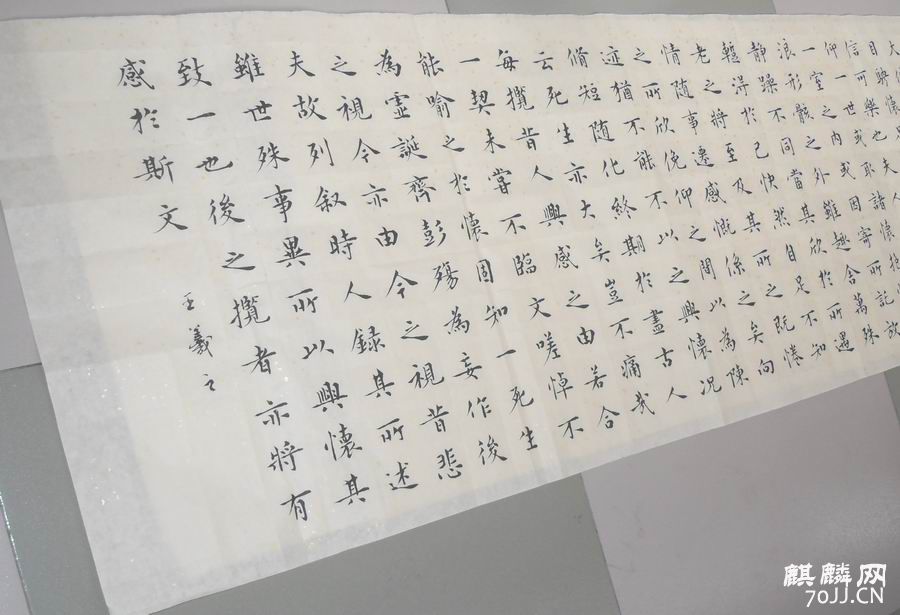 大
目騁懷足
信可樂也夫人
仰一世或取諸懷抱
一室之內或因寄所記放
浪形骸之外雖趣合萬殊
静躁不同當其欣於所遇
蹔得於己快然自足不知
老之將至及其所之既惓
情随事遷感慨係之矣向
之所欣俛仰之間以為陳
迹猶不能不以之興懷況
脩短随化終期於盡古人
云死生亦大矣豈不痛哉
每攬昔人興感之由若合
一契未甞不臨文嗟悼不
能喻之於懷固知一死生
為虛誕齊彭殤為妄作後
之視今亦由今之視昔悲
夫故列叙時人錄其所述
雖世殊事異所以興懷其
致一也後之攬者亦將有
感於斯文
王羲之
麒麟网
70JJ.CN